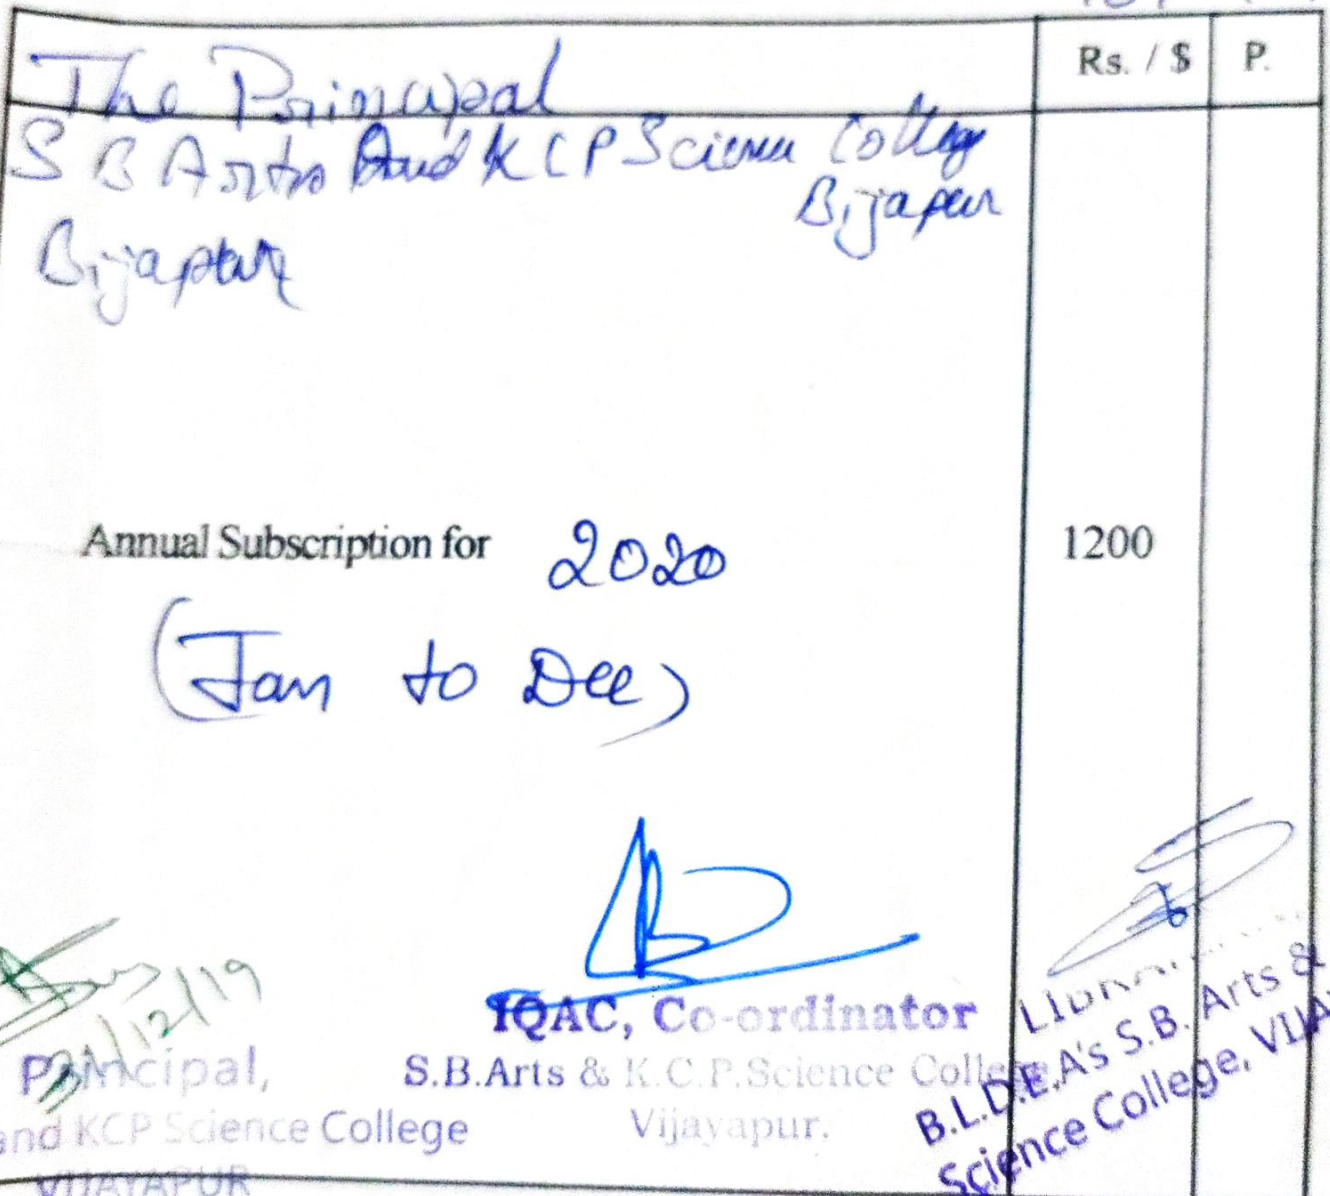 Rs. / $ P.
The Principal
S B Arts And K C P Science College
Bijapur
Bijapur
Annual Subscription for 2020 1200
(Jan to Dec)
31/12/19
Principal,
and KCP Science College
VIJAYAPUR
IQAC, Co-ordinator
S.B.Arts & K.C.P.Science College
Vijayapur.
B.L.D.E.A's S.B. Arts &
Science College,